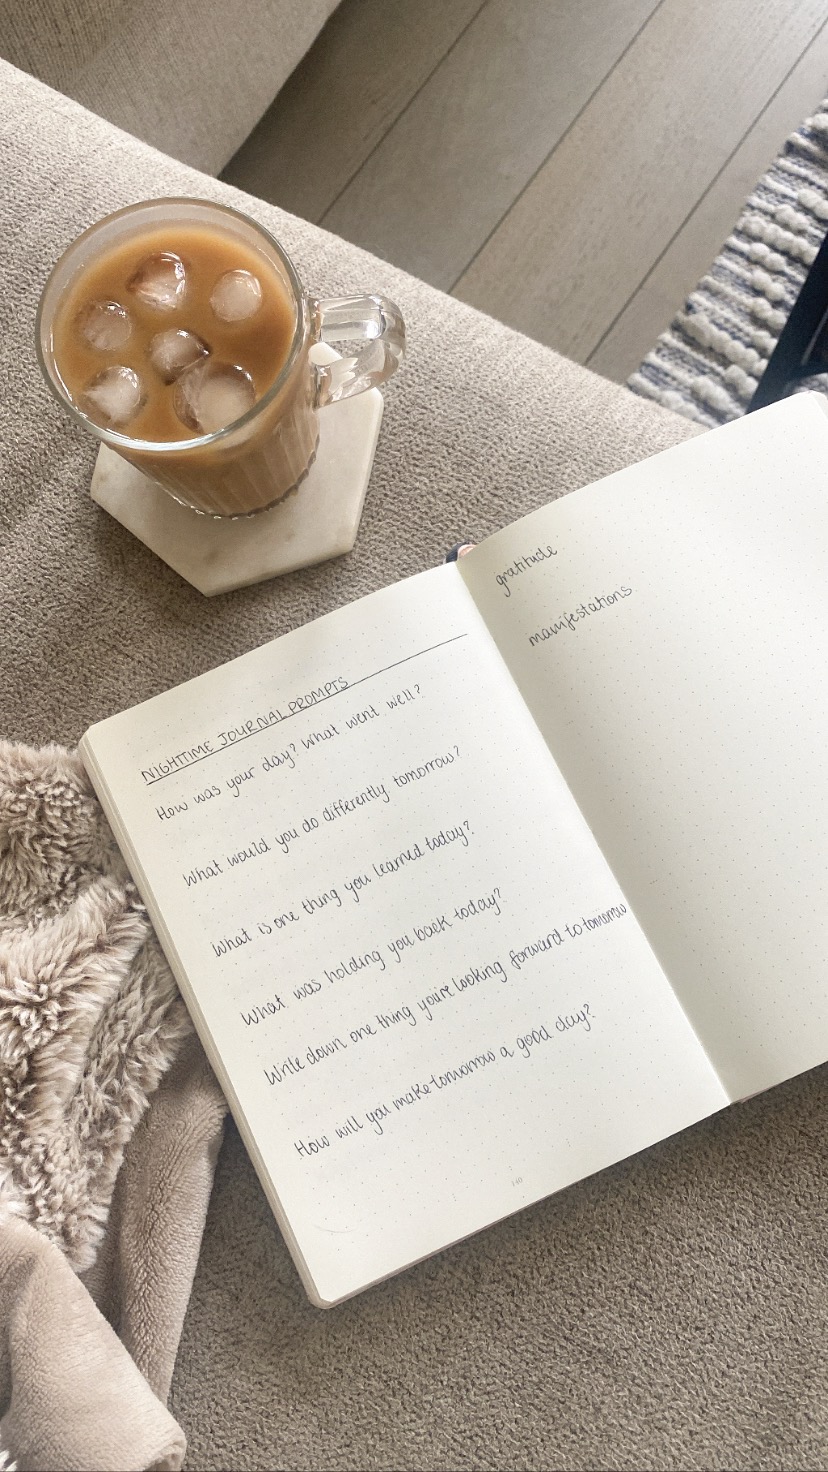 NIGHTTIME JOURNAL PROMPTS
How was your day? What went well?
What would you do differently tomorrow?
What is one thing you learned today?
What was holding you back today?
Write down one thing you're looking forward to tomorrow
How will you make tomorrow a good day?
140
gratitude
manifestations